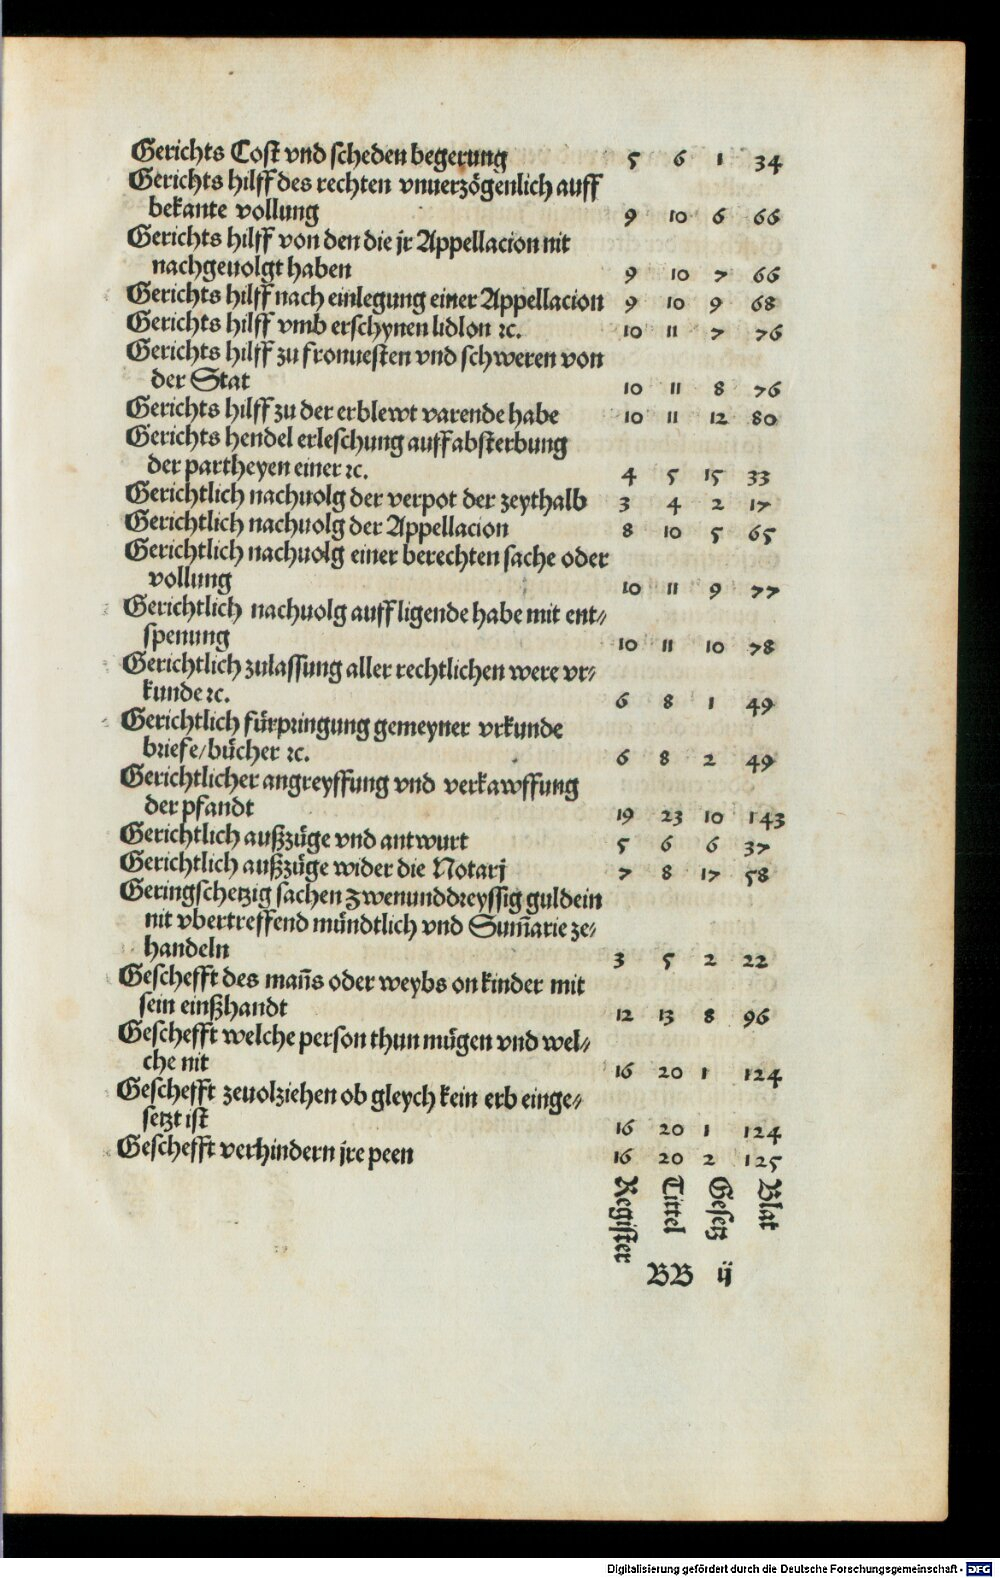 Gerichts Cost vnd scheden begerung 5 6 1 34
Gerichts hilff des rechten vnuerzögenlich auff
bekante vollung 9 10 6 66
Gerichts hilff von den die jr Appellacion nit
nachgeuolgt haben 9 10 7 66
Gerichts hilff nach einlegung einer Appellacion 9 10 9 68
Gerichts hilff vmb erschynen lidlon ꝛc. 10 11 7 76
Gerichts hilff zu fronuesten vnd schweren von
der Stat 10 11 8 76
Gerichts hilff zu der erblewt varende habe 10 11 12 80
Gerichts hendel erleschung auff absterbung
der partheyen einer ꝛc. 4 5 15 33
Gerichtlich nachuolg der verpot der zeythalb 3 4 2 17
Gerichtlich nachuolg der Appellacion 8 10 5 65
Gerichtlich nachuolg einer berechten sache oder
vollung 10 11 9 77
Gerichtlich nachuolg auff ligende habe mit ent⸗
spenung 10 11 10 78
Gerichtlich zulassung aller rechtlichen were vr⸗
kunde ꝛc. 6 8 1 49
Gerichtlich fürpringung gemeyner vrkunde
briefe/bücher ꝛc. 6 8 2 49
Gerichtlicher angreyffung vnd verkawffung
der pfandt 19 23 10 143
Gerichtlich außzüge vnd antwurt 5 6 6 37
Gerichtlich außzüge wider die Notarj 7 8 17 58
Geringschetzig sachen zwenunddreyssig guldein
nit vbertreffend mündtlich vnd Sum̄arie ze⸗
handeln 3 5 2 22
Geschefft des man̄s oder weybs on kinder mit
sein einßhandt 12 13 8 96
Geschefft welche person thun mügen vnd wel⸗
che nit 16 20 1 124
Geschefft zeuolziehen ob gleych kein erb einge⸗
setzt ist 16 20 1 124
Geschefft verhindern jre peen 16 20 2 125
Register Tittel Gesetz Blat
BB ij
Digitalisierung gefördert durch die Deutsche Forschungsgemeinschaft - DFG